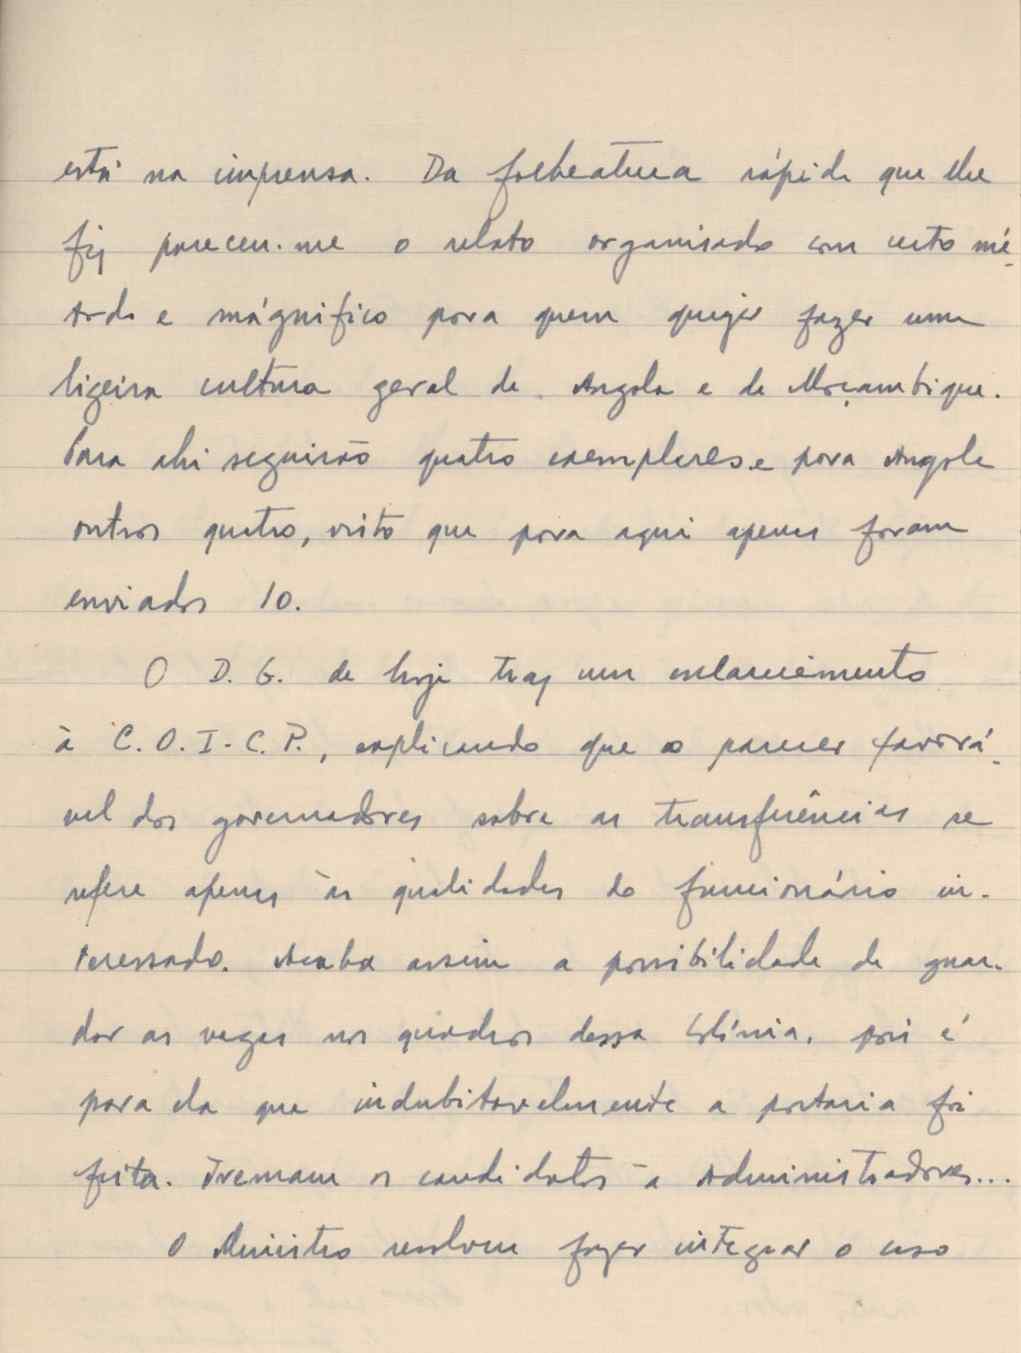 está na imprensa. Da folheatura rápida que lhe
fiz pareceu-me o relato organisado com certo mé-
todo e magnífico para quem quizer fazer uma
ligeira cultura geral de Angola e de Moçambique.
Para ahi seguirão quatro exemplares e para Angola
outros quatro, visto que para aqui apenas foram
enviados 10.
O D. G. de hoje traz um esclarecimento
à C. O. I. C. P., explicando que o parecer favorá-
vel dos governadores sobre as transferências se
refere apenas às qualidades do funcionário in-
teressado. Acaba assim a possibilidade de guar-
dar as vagas nos quadros dessa Colónia, pois é
para ela que indubitavelmente a portaria foi
feita. Tremam os candidatos a Administradores...
O Ministro resolveu fazer integrar o caso